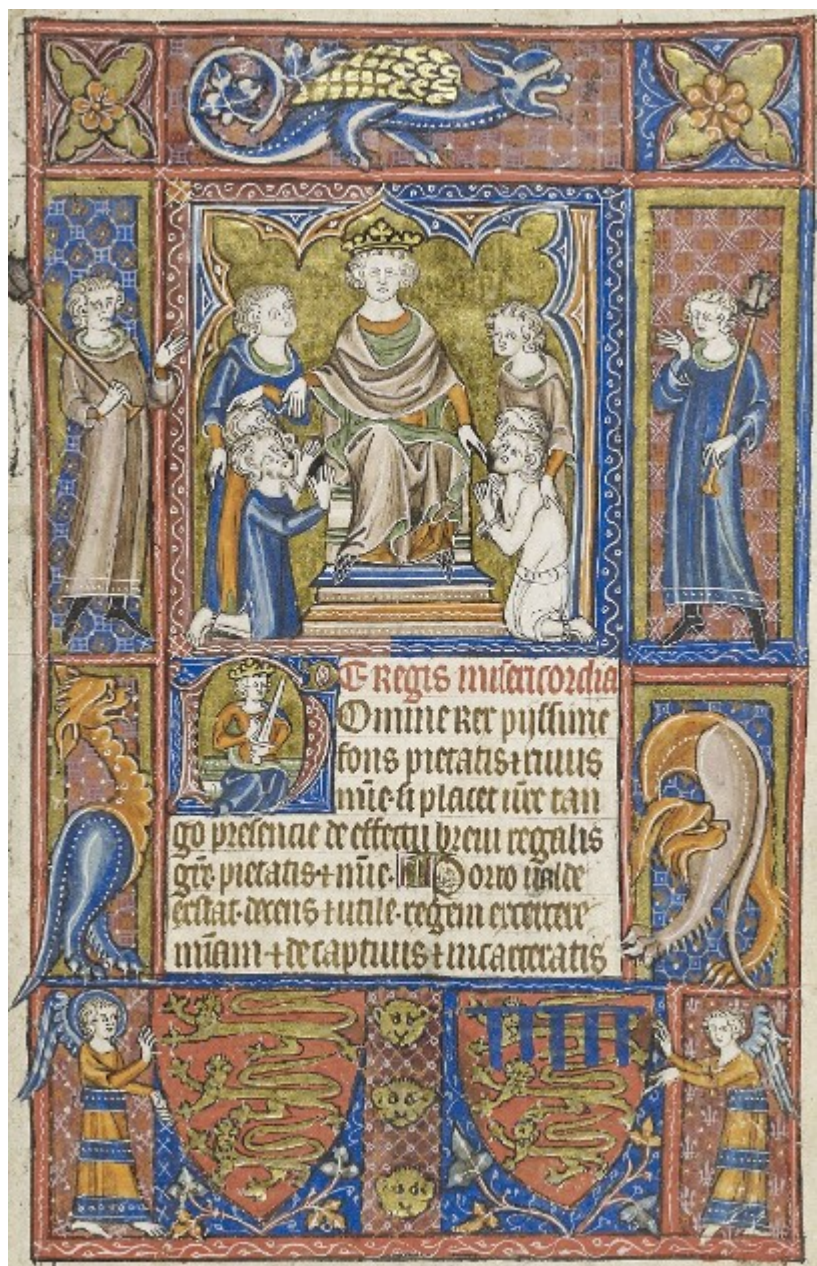 De Regis misericordia
Domine Rex pijssime
fons pietatis ⁊ riuus
mīe si placet ūre tan
go presencie de effectu breui regalis
gr̄e pietatis ⁊ mīe. Porro ualde
extat decens ⁊ utile regem exercere
mīam ⁊ de captiuis ⁊ incarceratis